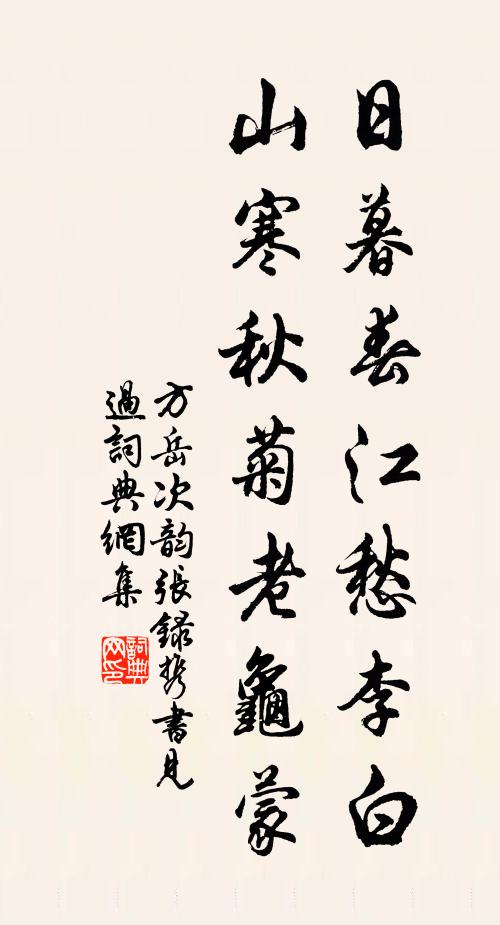 日暮春江愁李白
山寒秋菊老龜蒙
方岳次韵張録攜書見
過詞典網集
詞典
网印